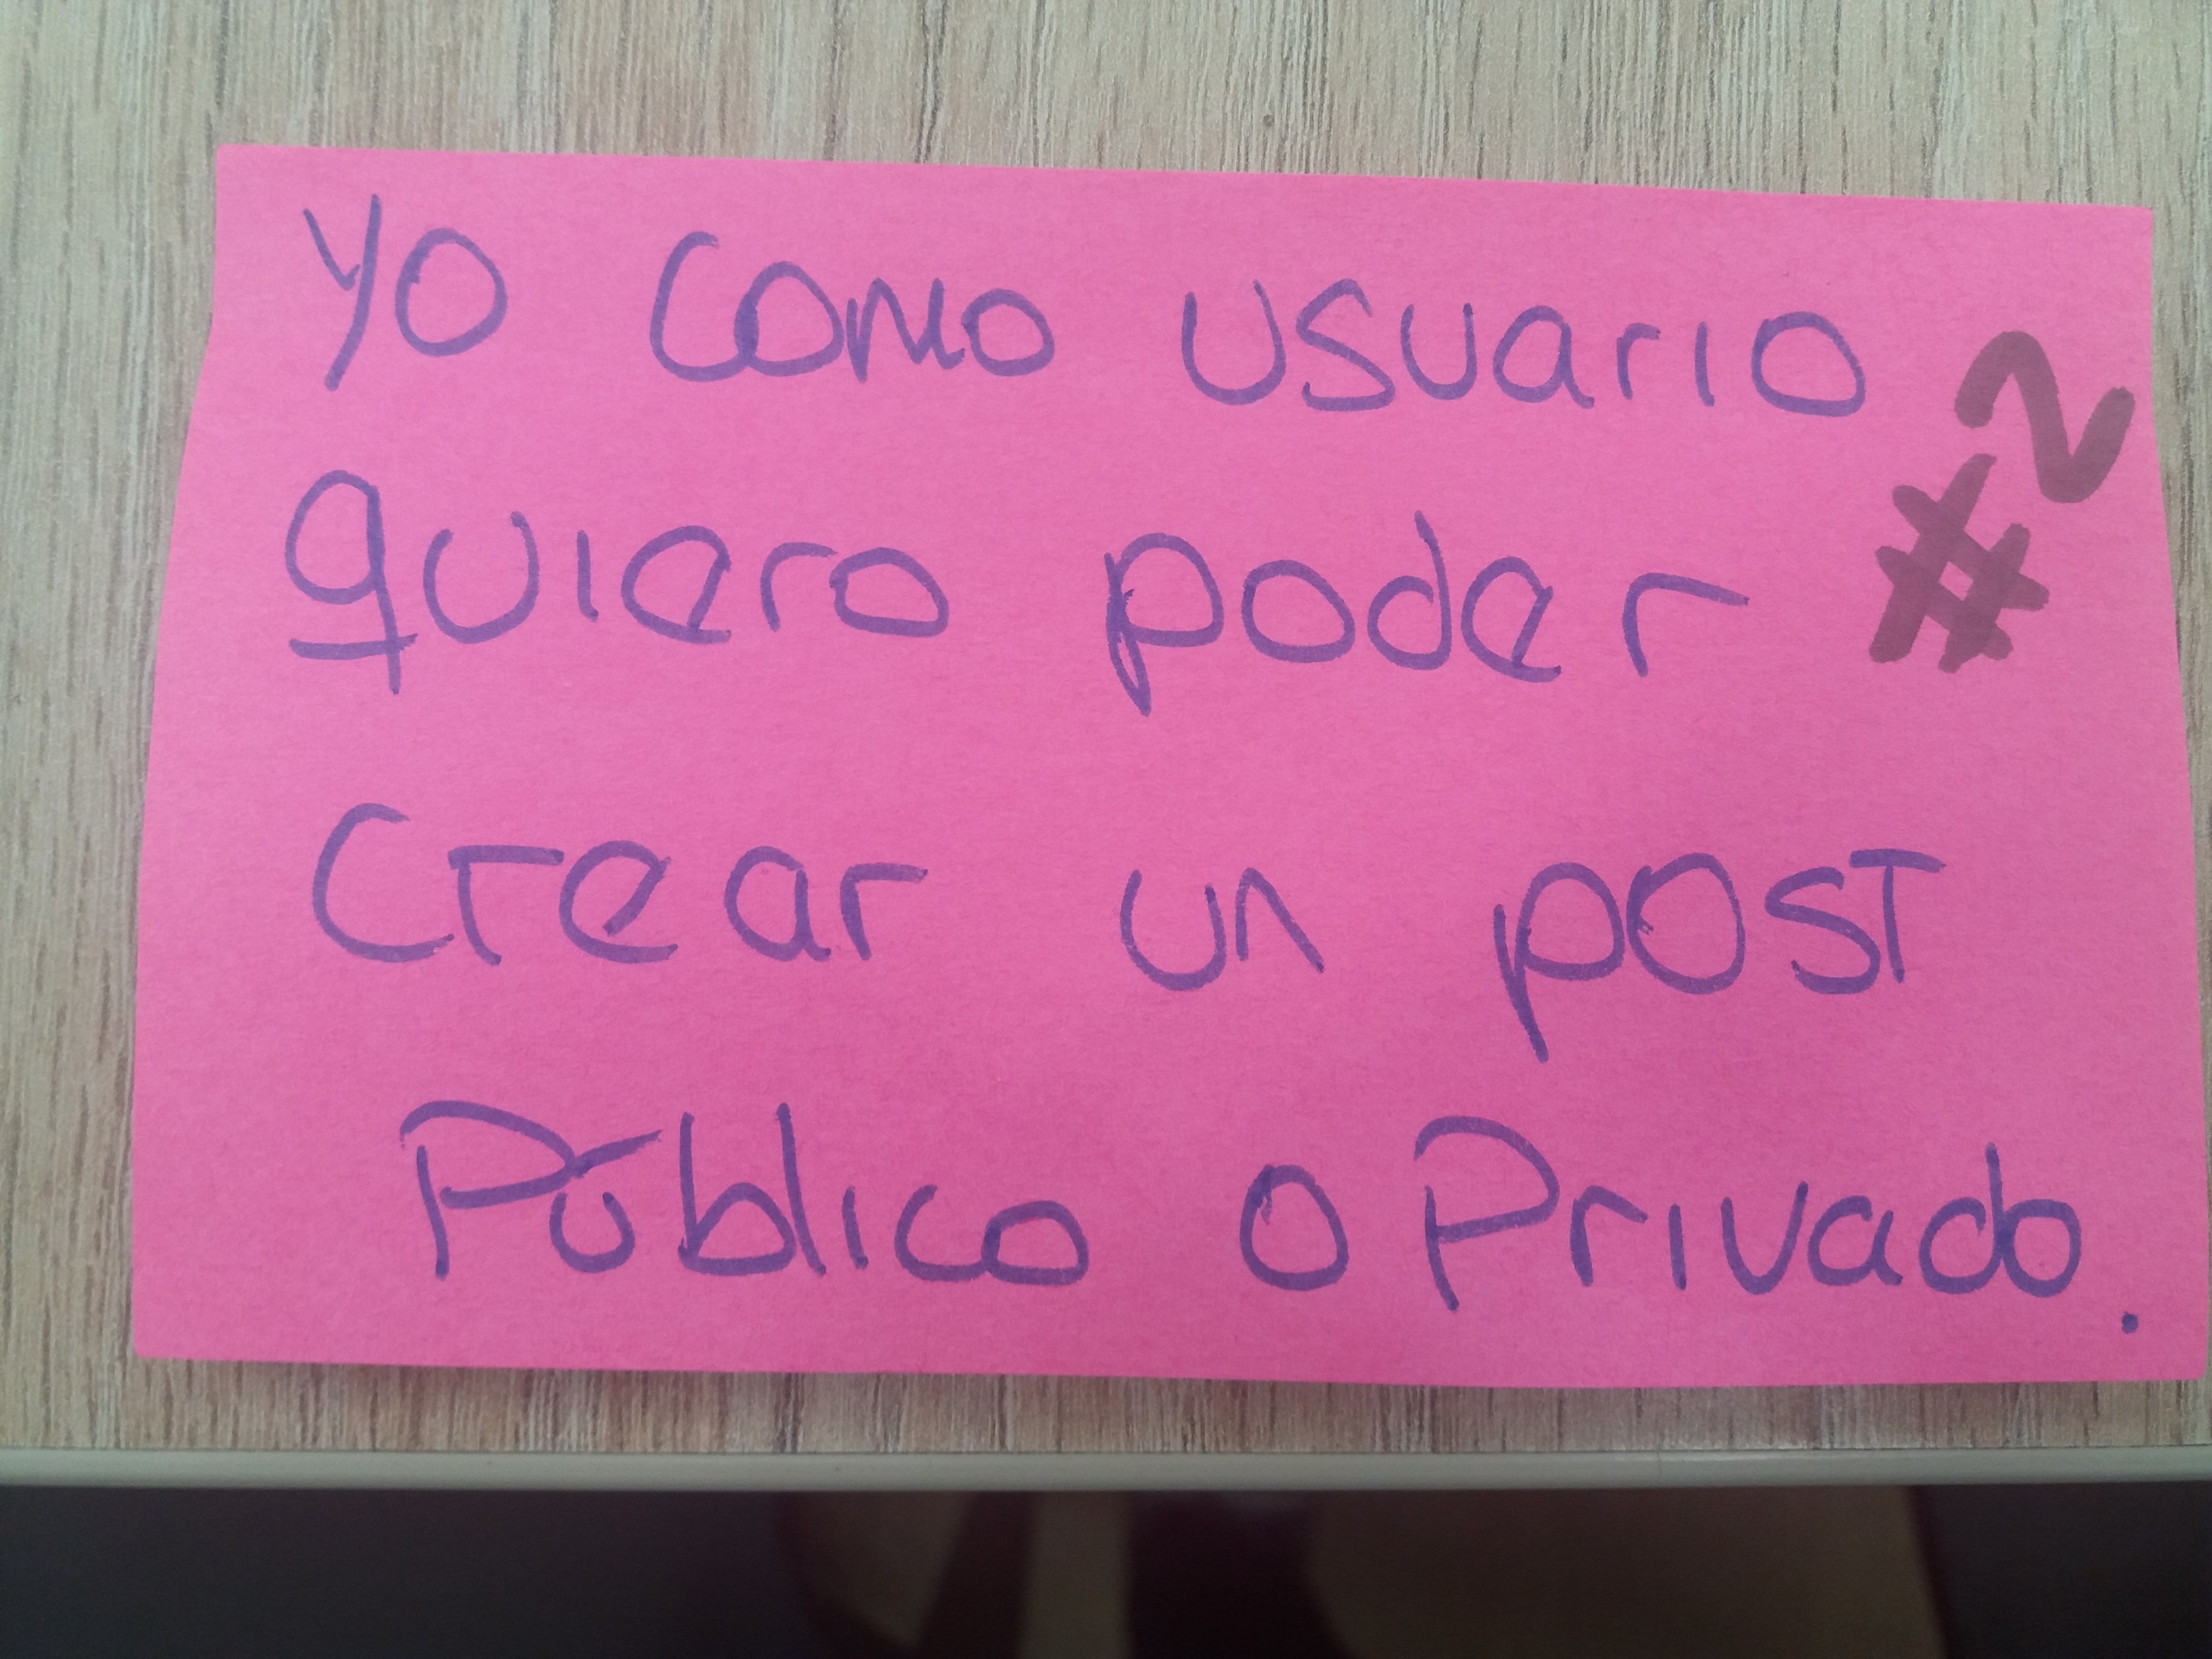 Yo como usuario
quiero poder
#2
Crear un post
Público o Privado.